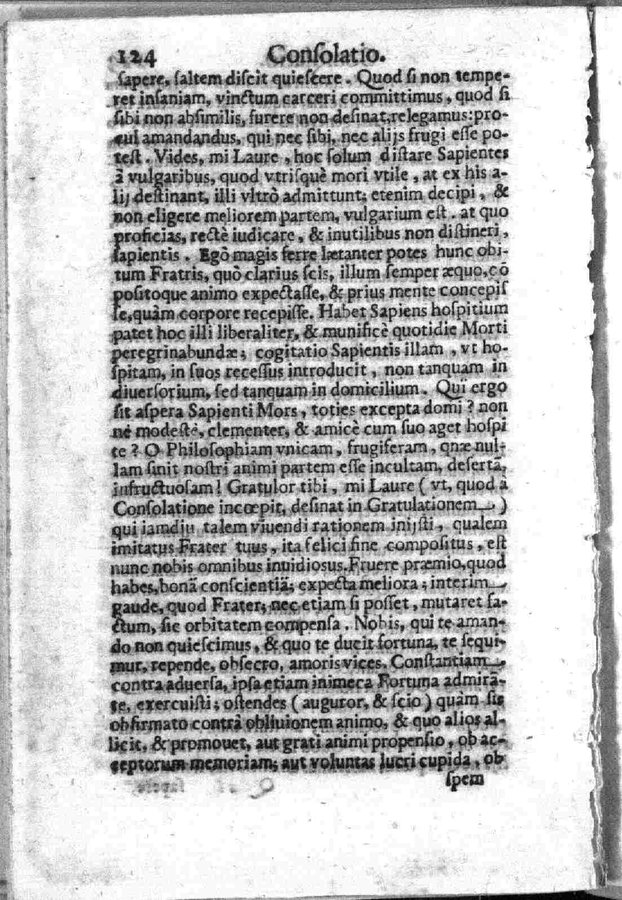 124 Conſolatio.
ſapere, ſaltem diſcit quieſcere. Quod ſi non tempe-
ret inſaniam, vinctum carceri committimus, quod ſi
ſibi non abſimilis, furere non deſinat,relegamus:pro-
cul amandandus, qui nec ſibi, nec alijs frugi eſſe po-
teſt. Vides, mi Laure, hoc ſolum diſtare Sapientes
à vulgaribus, quod vtriſquè mori vtile, at ex his a-
lij deſtinant, illi vltrò admittunt; etenim decipi, &
non eligere meliorem partem, vulgarium eſt. at quo
proficias, rectè iudicare, & inutilibus non diſtineri,
ſapientis. Egò magis ferre lætanter potes hunc obi-
tum Fratris, quò clarius ſcis, illum ſemper æquo,cō
poſitoque animo expectaſſe, & prius mente concepiſ
ſe,quàm corpore recepiſſe. Habet Sapiens hoſpitium
patet hoc illi liberaliter, & munificè quotidie Morti
peregrinabundæ; cogitatio Sapientis illam, vt ho-
ſpitam, in ſuos receſſus introducit, non tanquam in
diuerſorium, ſed tanquam in domicilium. Qui ergo
ſit aſpera Sapienti Mors, toties excepta domi? non
nè modeſtè, clementer, & amicè cum ſuo aget hoſpi
te? O Philoſophiam vnicam, frugiferam, quæ nul-
lam ſinit noſtri animi partem eſſe incultam, deſertā,
infructuoſam! Gratulor tibi, mi Laure (vt, quod à
Conſolatione incœpit, deſinat in Gratulationem)
qui iamdiu talem viuendi rationem inijſti, qualem
imitatus Frater tuus, ita felici fine compoſitus, eſt
nunc nobis omnibus inuidioſus.Fruere præmio,quod
habes,bonā conſcientiā; expecta meliora; interim
gaude, quod Frater, nec etiam ſi poſſet, mutaret fa-
ctum, ſic orbitatem compenſa. Nobis, qui te aman-
do non quieſcimus, & quo te ducit fortuna, te ſequi-
mur, repende, obſecro, amoris vices. Conſtantiam
contra aduerſa, ipſa etiam inimeca Fortuna admirā-
te, exercuiſti; oſtendes (auguror, & ſcio) quàm ſis
obfirmato contrà obliuionem animo, & quo alios al-
licit, & promouet, aut grati animi propenſio, ob ac-
ceptorum memoriam; aut voluntas lucri cupida, ob
ſpem